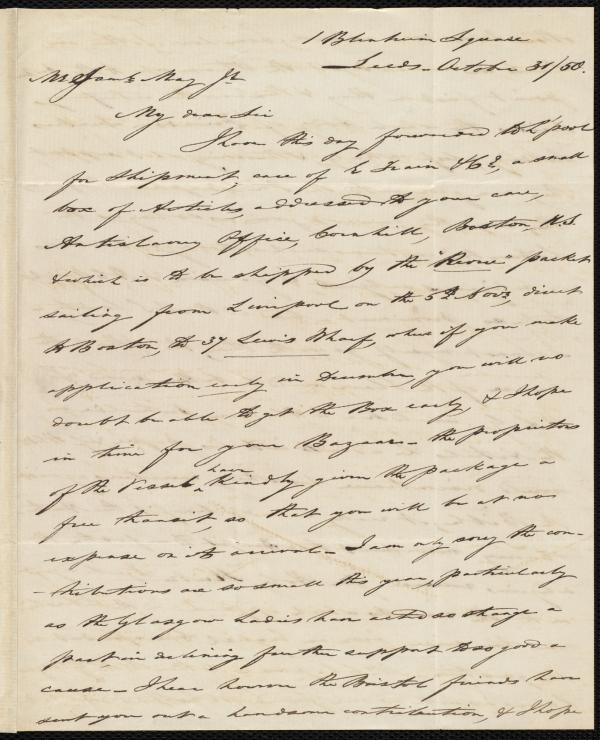 1 Blenheim Square
Leeds - October 31/50.
Mr Saml May Jr
My dear Sir
I have this day forwarded to L'pool
for shipment, care of Train & Co, a small
box of Articles, addressed to your care,
Antislavery Office, Cornhill, Boston, U.S
& which is to be shipped by the "Revere" packet
sailing from Liverpool on the 5th Novr, direct
to Boston, to 37 Lewis Wharf, where if you make
application early in December, you will no
doubt be able to get the Box early, & I hope
in time for your Bazaar - the proprietors
of the Vessel have kindly given the package a
free transit, so that you will be at no
expense on its arrival - I am only sorry the con-
-tributions are so small this year, particularly
as the Glasgow Ladies have acted so strange a
part in declining further support to so good a
cause - I hear however the Bristol friends have
sent you out a handsome contribution, & I hope